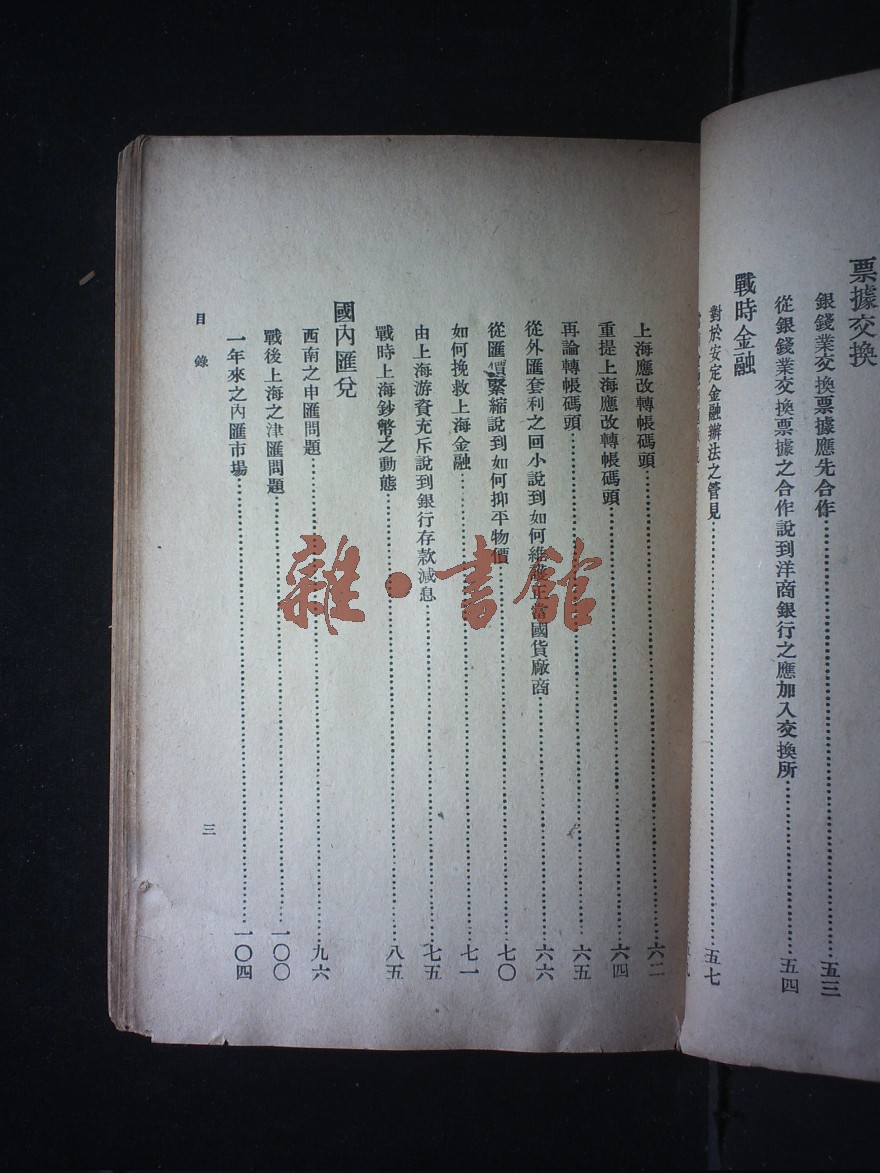 票據交換
銀錢業交換票據應先合作……五三
從銀錢業交換票據之合作說到洋商銀行之應加入交換所……五四
戰時金融
對於安定金融辦法之管見……五七
上海應改轉帳碼頭……六二
重提上海應改轉帳碼頭……六四
再論轉帳碼頭……六五
從外匯套利之回小說到如何維護正當國貨廠商……六六
從匯價緊縮說到如何抑平物價……七〇
如何挽救上海金融……七一
由上海游資充斥說到銀行存款減息……七五
戰時上海鈔幣之動態……八五
國內匯兌
西南之申匯問題……九六
戰後上海之津匯問題……一〇〇
一年來之內匯市場……一〇四
目錄
三
雜·書館